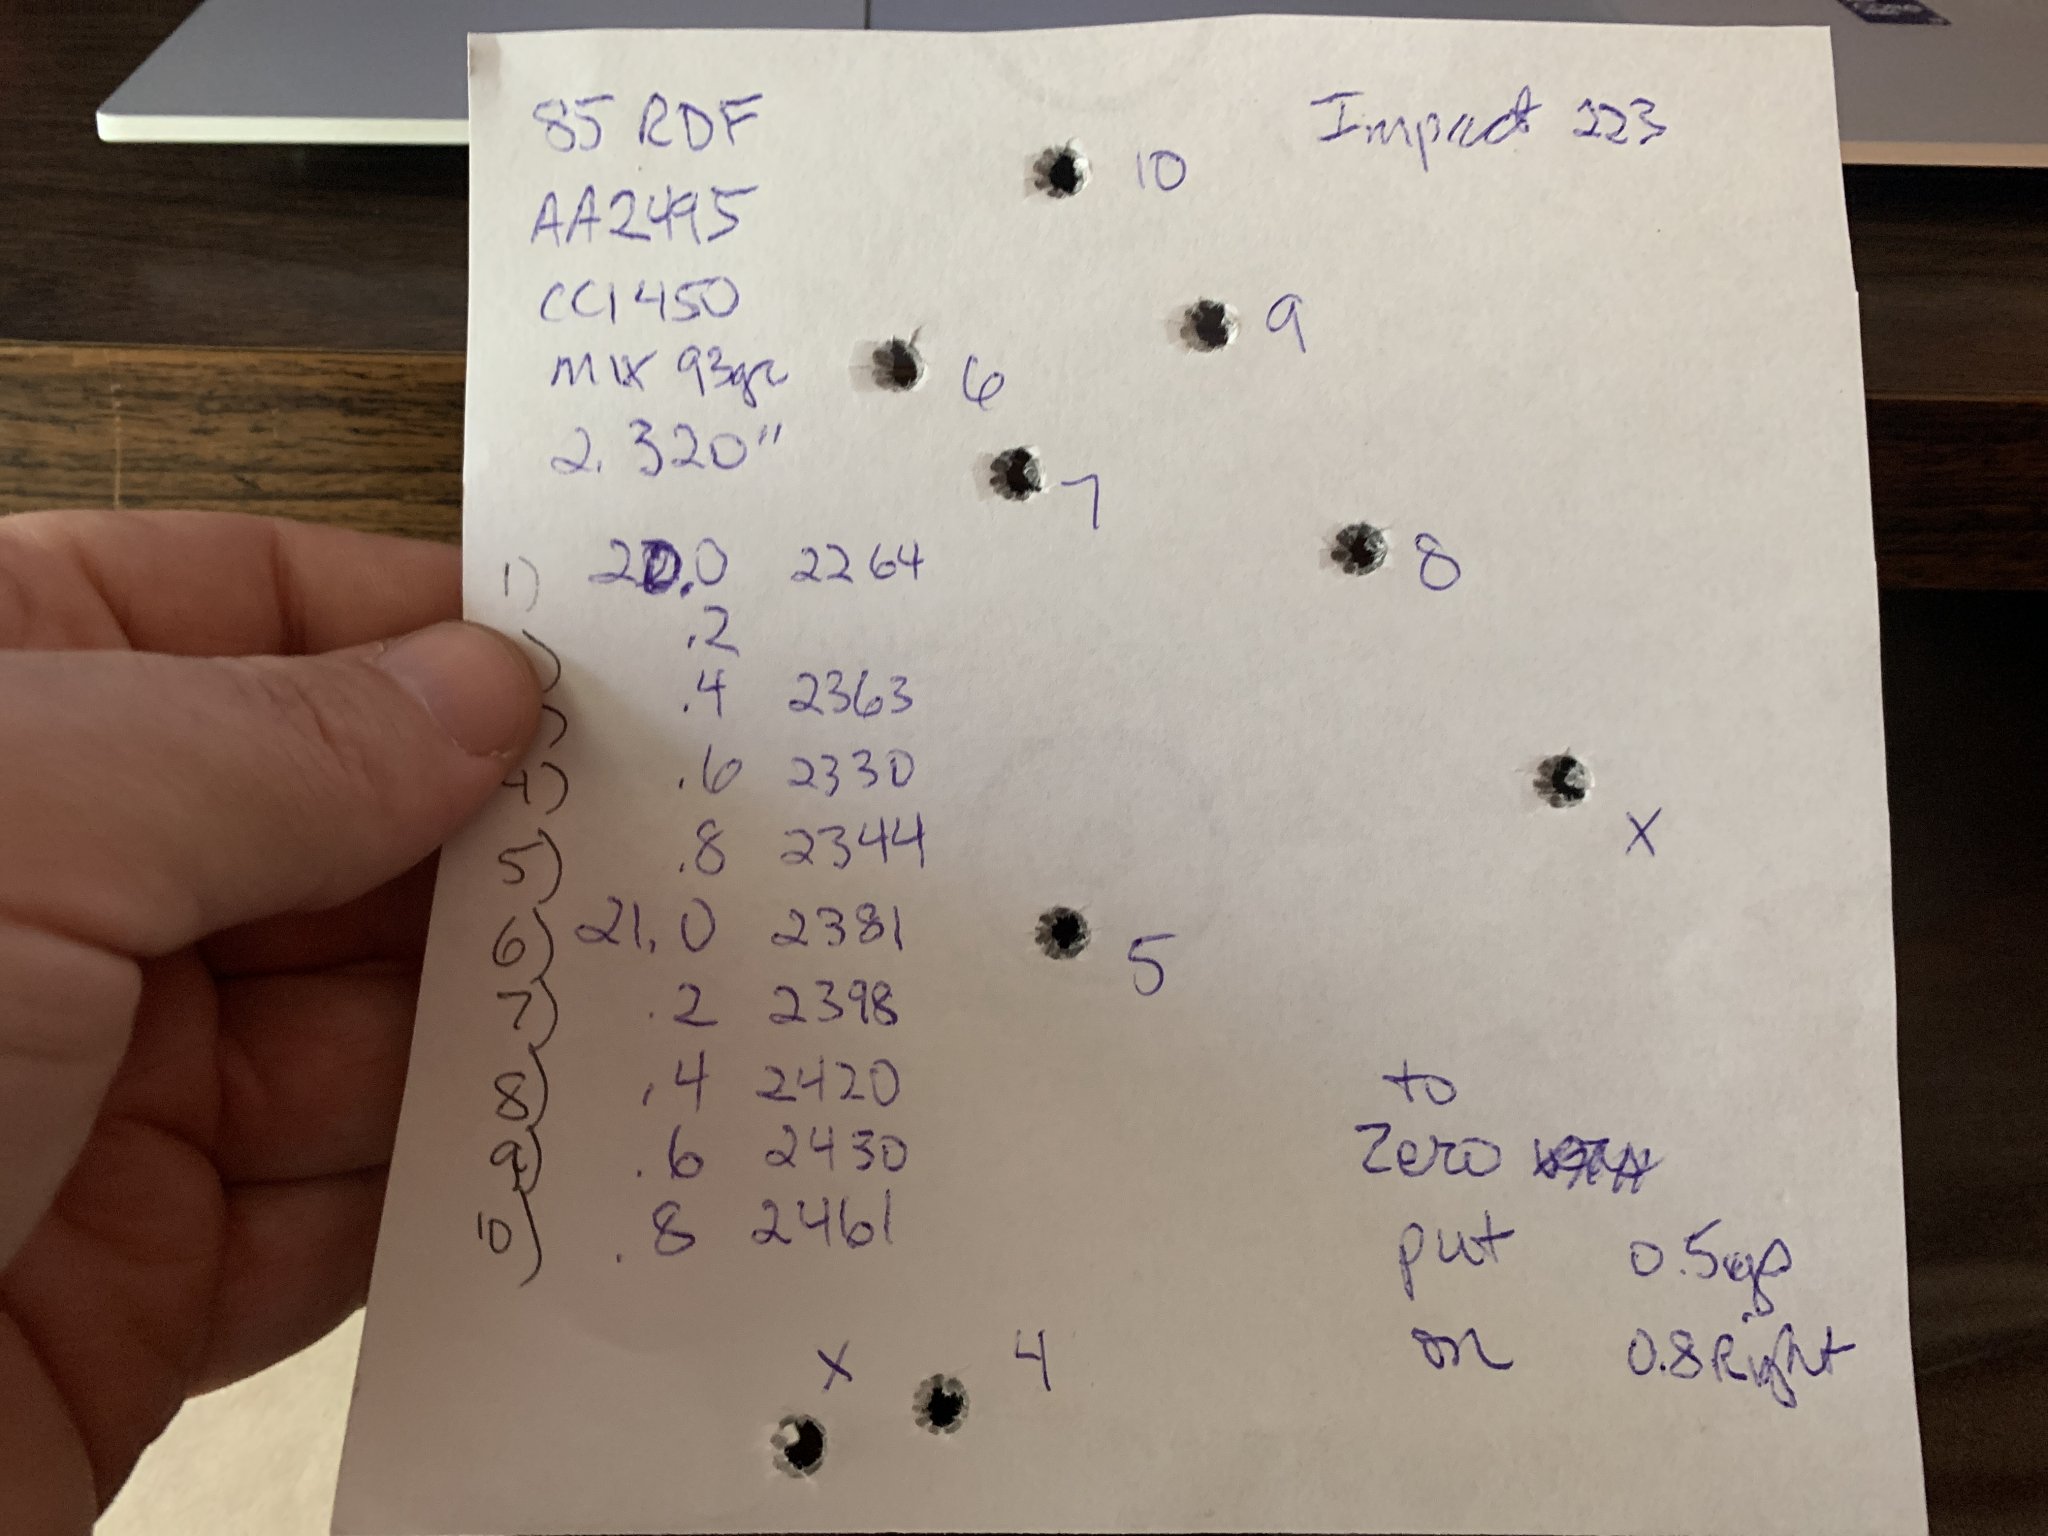 85 RDF
AA2495
CCI 450
MIX 93gr
2.320"
Impact 223
10
9
6
7
8
X
5
X
4
1) 20.0 2264
) .2
) .4 2363
4) .6 2330
5) .8 2344
6) 21.0 2381
7) .2 2398
8) .4 2420
9) .6 2430
10) .8 2461
to
Zero
put 0.5up
on 0.8 Right